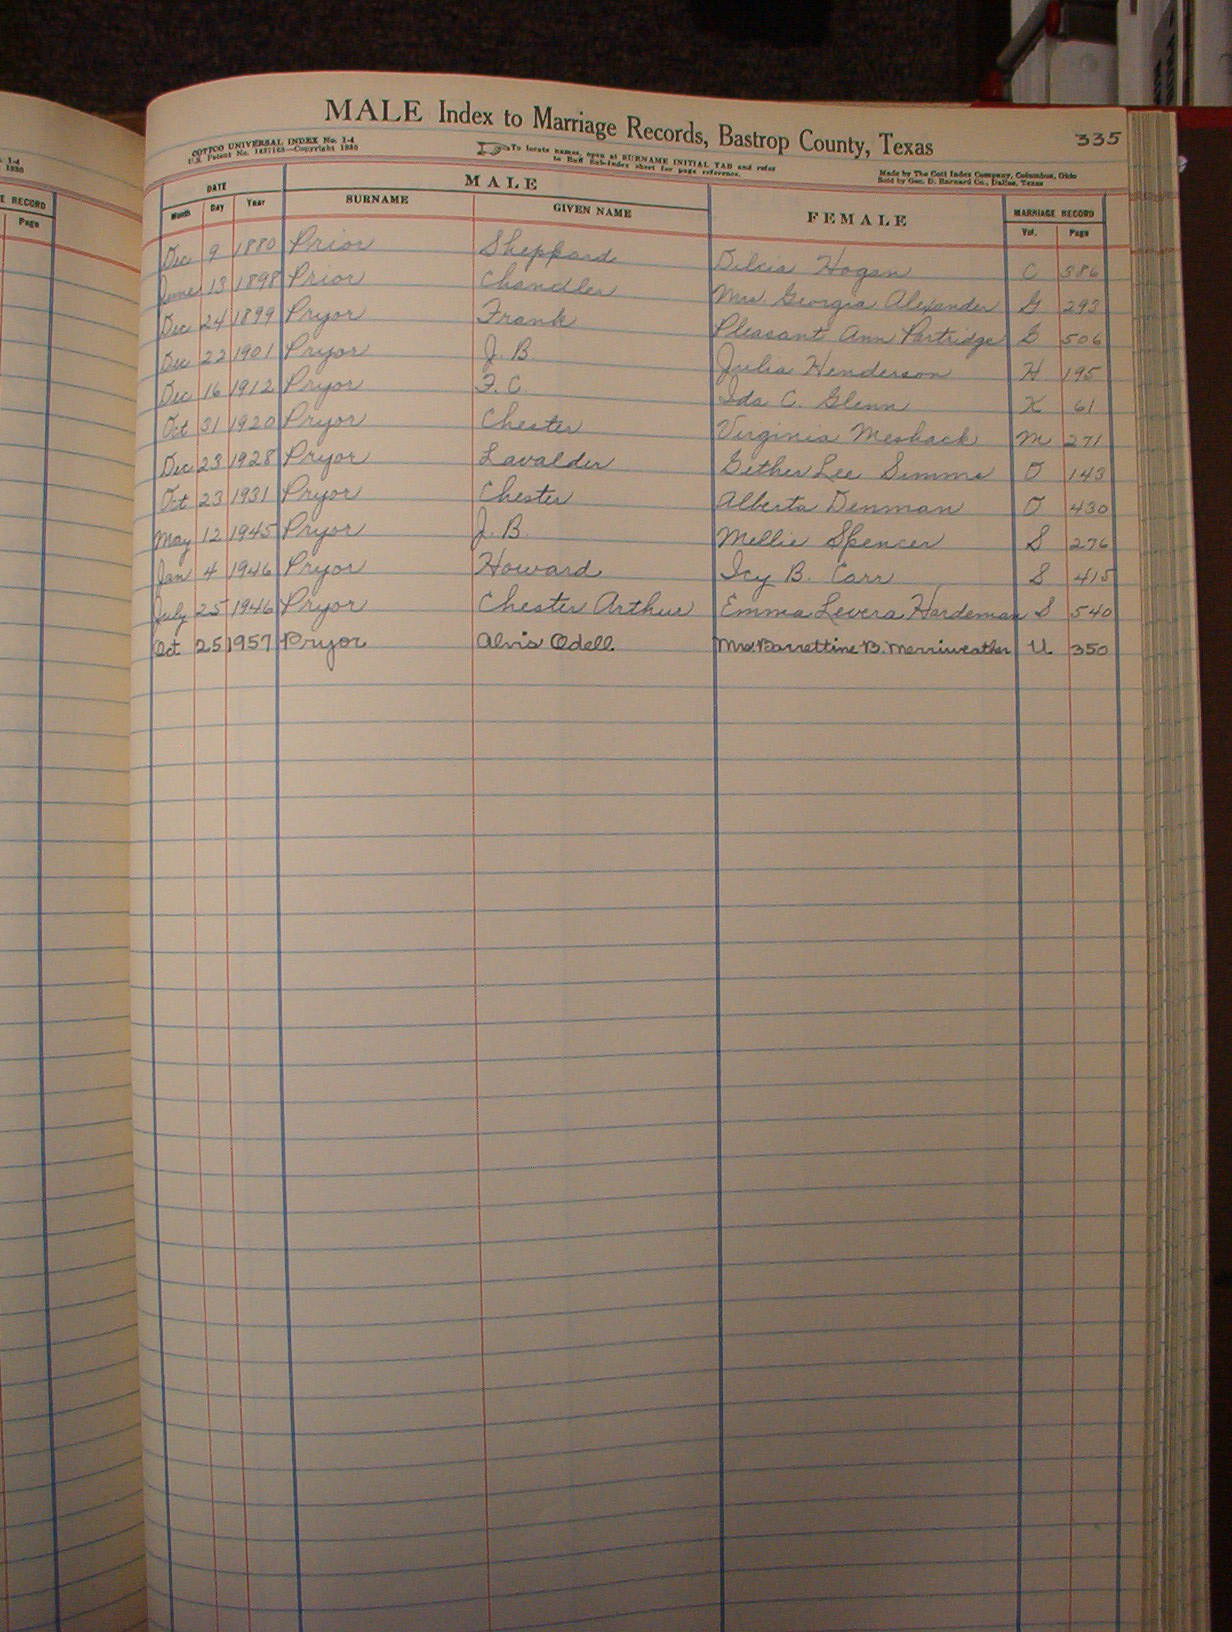 MALE Index to Marriage Records, Bastrop County, Texas 335
COTTCO UNIVERSAL INDEX No. 1-4
U.S. Patent No. 1427163—Copyright 1930
To locate names, open at SURNAME INITIAL TAB and refer
to Buff Sub-Index sheet for page reference.
Made by The Cott Index Company, Columbus, Ohio
Sold by Geo. D. Barnard Co., Dallas, Texas
DATE MALE FEMALE MARRIAGE RECORD
Month Day Year SURNAME GIVEN NAME Vol. Page
Dec 9 1880 Prior Sheppard Hogan C 386
June 13 1898 Prior Chandler Mrs Georgia Alexander G 293
Dec 24 1899 Pryor Frank Pleasant Ann Partridge G 506
Dec 22 1901 Pryor J. B. Julia Henderson H 195
Dec 16 1912 Pryor F. C. Ida C. Glenn K 61
Oct 31 1920 Pryor Chester Virginia Meshack M 271
Dec 23 1928 Pryor Lavalder Gether Lee Simms O 143
Oct 23 1931 Pryor Chester Alberta Denman O 430
May 12 1945 Pryor J. B. Mellie Spencer S 276
Jan 4 1946 Pryor Howard Icy B. Carr S 415
July 25 1946 Pryor Chester Arthur Emma Levera Hardeman S 540
Oct 25 1957 Pryor Alvis Odell Mrs. Barrettine B. Merriweather U 350
E RECORD
Page
1-4
1930